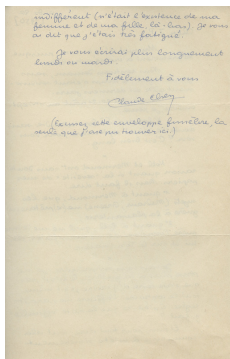 indifférent (n'était l'existence de ma
femme et de ma fille là-bas). Je vous
ai dit que j'étais très fatigué.
Je vous écrirai plus longuement
lundi ou mardi.
Fidèlement à vous
Claude
(Excusez cette enveloppe funèbre, la
seule que j'aie pu trouver ici.)